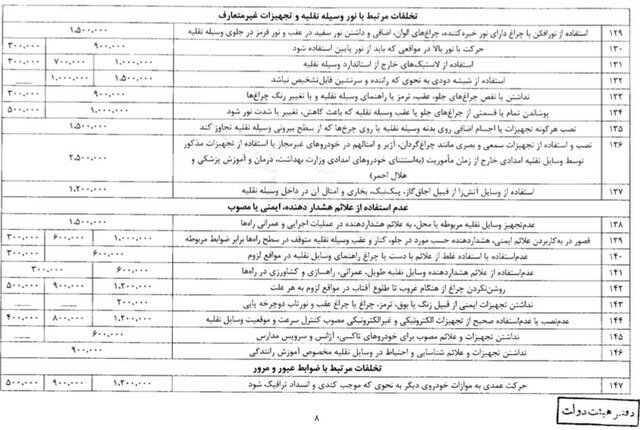 تخلفات مرتبط با نور وسیله نقلیه و تجهیزات غیرمتعارف
۱۲۹ استفاده از نورافکن یا چراغ دارای نور خیره‌کننده، چراغ‌های الوان، اضافی و داشتن نور سفید در عقب و نور قرمز در جلوی وسیله نقلیه ۱،۵۰۰،۰۰۰
۱۳۰ حرکت با نور بالا در مواقعی که باید از نور پایین استفاده شود ۹۰۰،۰۰۰ ۳۰۰،۰۰۰
۱۳۱ استفاده از لاستیک‌های خارج از استاندارد وسیله نقلیه ۱،۰۰۰،۰۰۰ ۷۰۰،۰۰۰ ۳۰۰،۰۰۰
۱۳۲ استفاده از شیشه دودی به نحوی که راننده و سرنشین قابل‌تشخیص نباشد ۱،۵۰۰،۰۰۰ ۱،۰۰۰،۰۰۰ ـــ
۱۳۳ نداشتن یا نقص چراغ‌های جلو، عقب، ترمز یا راهنمای وسیله نقلیه و یا تغییر رنگ چراغ‌ها ۹۰۰،۰۰۰ ۳۰۰،۰۰۰
۱۳۴ پوشاندن تمام یا قسمتی از چراغ‌های جلو یا عقب وسیله نقلیه که باعث کاهش، تغییر یا شدت نور شود ۱،۰۰۰،۰۰۰ ۵۰۰،۰۰۰
۱۳۵ نصب هرگونه تجهیزات یا اجسام اضافی روی بدنه وسیله نقلیه یا روی چرخ‌ها که از سطح بیرونی وسیله نقلیه تجاوز کند ۱،۵۰۰،۰۰۰
۱۳۶ نصب و استفاده از تجهیزات سمعی و بصری مانند چراغ‌گردان، آژیر و امثالهم در خودروهای غیرمجاز یا استفاده از تجهیزات مذکور
توسط وسایل نقلیه امدادی خارج از زمان مأموریت (به‌استثنای خودروهای امدادی وزارت بهداشت، درمان و آموزش پزشکی و ۲،۵۰۰،۰۰۰
هلال احمر)
۱۳۷ استفاده از وسایل آتش‌زا از قبیل اجاق‌گاز، پیک‌نیک، بخاری و امثال آن در داخل وسیله نقلیه ۱،۲۰۰،۰۰۰
عدم استفاده از علائم هشدار دهنده، ایمنی یا مصوب
۱۳۸ عدم‌تجهیز وسایل نقلیه مربوطه یا محل، به علائم هشداردهنده در عملیات اجرایی و عمرانی راه‌ها ۱،۵۰۰،۰۰۰
۱۳۹ قصور در به‌کاربردن علائم ایمنی، هشداردهنده حسب مورد در جلو، کنار و عقب وسیله نقلیه متوقف در سطح راه‌ها برابر ضوابط مربوطه ۱،۰۰۰،۰۰۰ ۶۰۰،۰۰۰ ۳۰۰،۰۰۰
۱۴۰ عدم‌استفاده یا استفاده غلط از علائم با دست یا چراغ راهنمای وسایل نقلیه در مواقع لزوم ۶۰۰،۰۰۰ ۳۰۰،۰۰۰
۱۴۱ عدم‌استفاده از علائم هشداردهنده وسایل نقلیه طویل، عمرانی، راهسازی و کشاورزی در راه‌ها ۶۰۰،۰۰۰ ۳۰۰،۰۰۰
۱۴۲ روشن‌نکردن چراغ از هنگام غروب تا طلوع آفتاب در مواقع لزوم به هر علت ۱،۲۰۰،۰۰۰ ۹۰۰،۰۰۰ ۵۰۰،۰۰۰
۱۴۳ نداشتن تجهیزات ایمنی از قبیل زنگ یا بوق، ترمز، چراغ یا چراغ عقب و نورتاب دوچرخه پایی ۲۰۰،۰۰۰ ـــ
۱۴۴ عدم‌نصب یا عدم‌استفاده صحیح از تجهیزات الکترونیکی و غیرالکترونیکی مصوب کنترل سرعت و موقعیت وسایل نقلیه ۱،۲۰۰،۰۰۰ ۸۰۰،۰۰۰ ۴۰۰،۰۰۰
۱۴۵ نداشتن تجهیزات و علائم مصوب برای خودروهای تاکسی، آژانس و سرویس مدارس ۶۰۰،۰۰۰
۱۴۶ نداشتن تجهیزات و علائم شناسایی و احتیاط در وسایل نقلیه مخصوص آموزش رانندگی ۹۰۰،۰۰۰
تخلفات مرتبط با ضوابط عبور و مرور
۱۴۷ حرکت عمدی به موازات خودروی دیگر به نحوی که موجب کندی و انسداد ترافیک شود ۱،۲۰۰،۰۰۰ ۹۰۰،۰۰۰ ۵۰۰،۰۰۰
۸
دفتر هیئت دولت